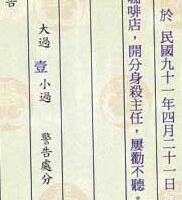 於民國九十一年四月二十一日
咖啡店，開分身殺主任，屢勸不聽。
大過　壹　小過　警告處分
告